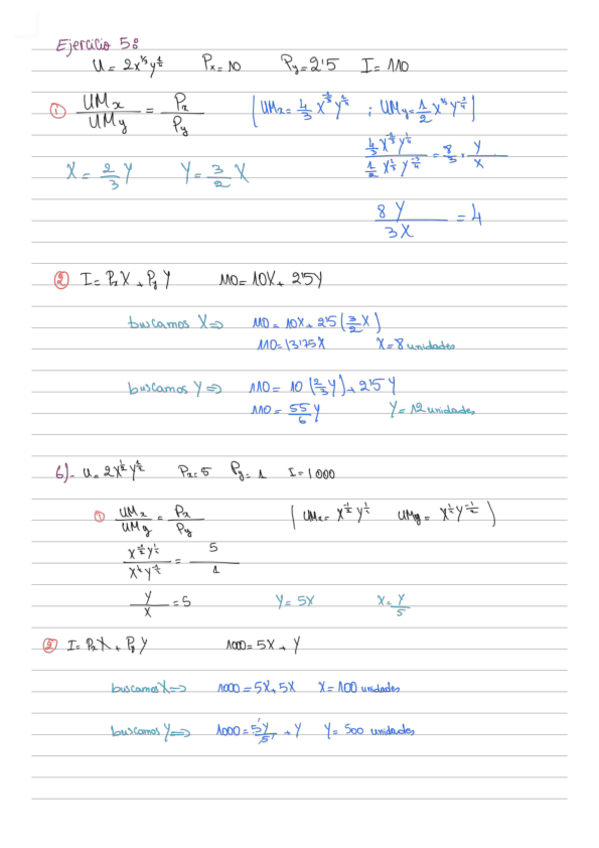 Ejercicio 5:
U = 2x^{1/3}y^{1/4} Px = 10 Py = 2'5 I = 110
① UMx/UMy = Px/Py [UMx = 4/3 x^{-2/3} y^{2/4} ; UMy = 1/2 x^{1/3} y^{-3/4}]
X = 2/3 Y Y = 3/2 X
8Y/3X = 4
② I = PxX + PyY 110 = 10X + 2'5Y
buscamos X => 110 = 10X + 2'5(3/2 X)
110 = 13'75X X = 8 unidades
buscamos Y => 110 = 10(2/3 Y) + 2'5Y
110 = 55/6 Y Y = 12 unidades
6).- U = 2x^{1/2}y^{1/2} Px = 5 Py = 1 I = 1000
① UMx/UMy = Px/Py (UMx = x^{-1/2} y^{1/2} UMy = x^{1/2} y^{-1/2})
x^{-1/2} y^{1/2} / x^{1/2} y^{-1/2} = 5/1
Y/X = 5 Y = 5X X = Y/5
② I = PxX + PyY 1000 = 5X + Y
buscamos X => 1000 = 5X + 5X X = 100 unidades
buscamos Y => 1000 = 5Y/5 + Y Y = 500 unidades